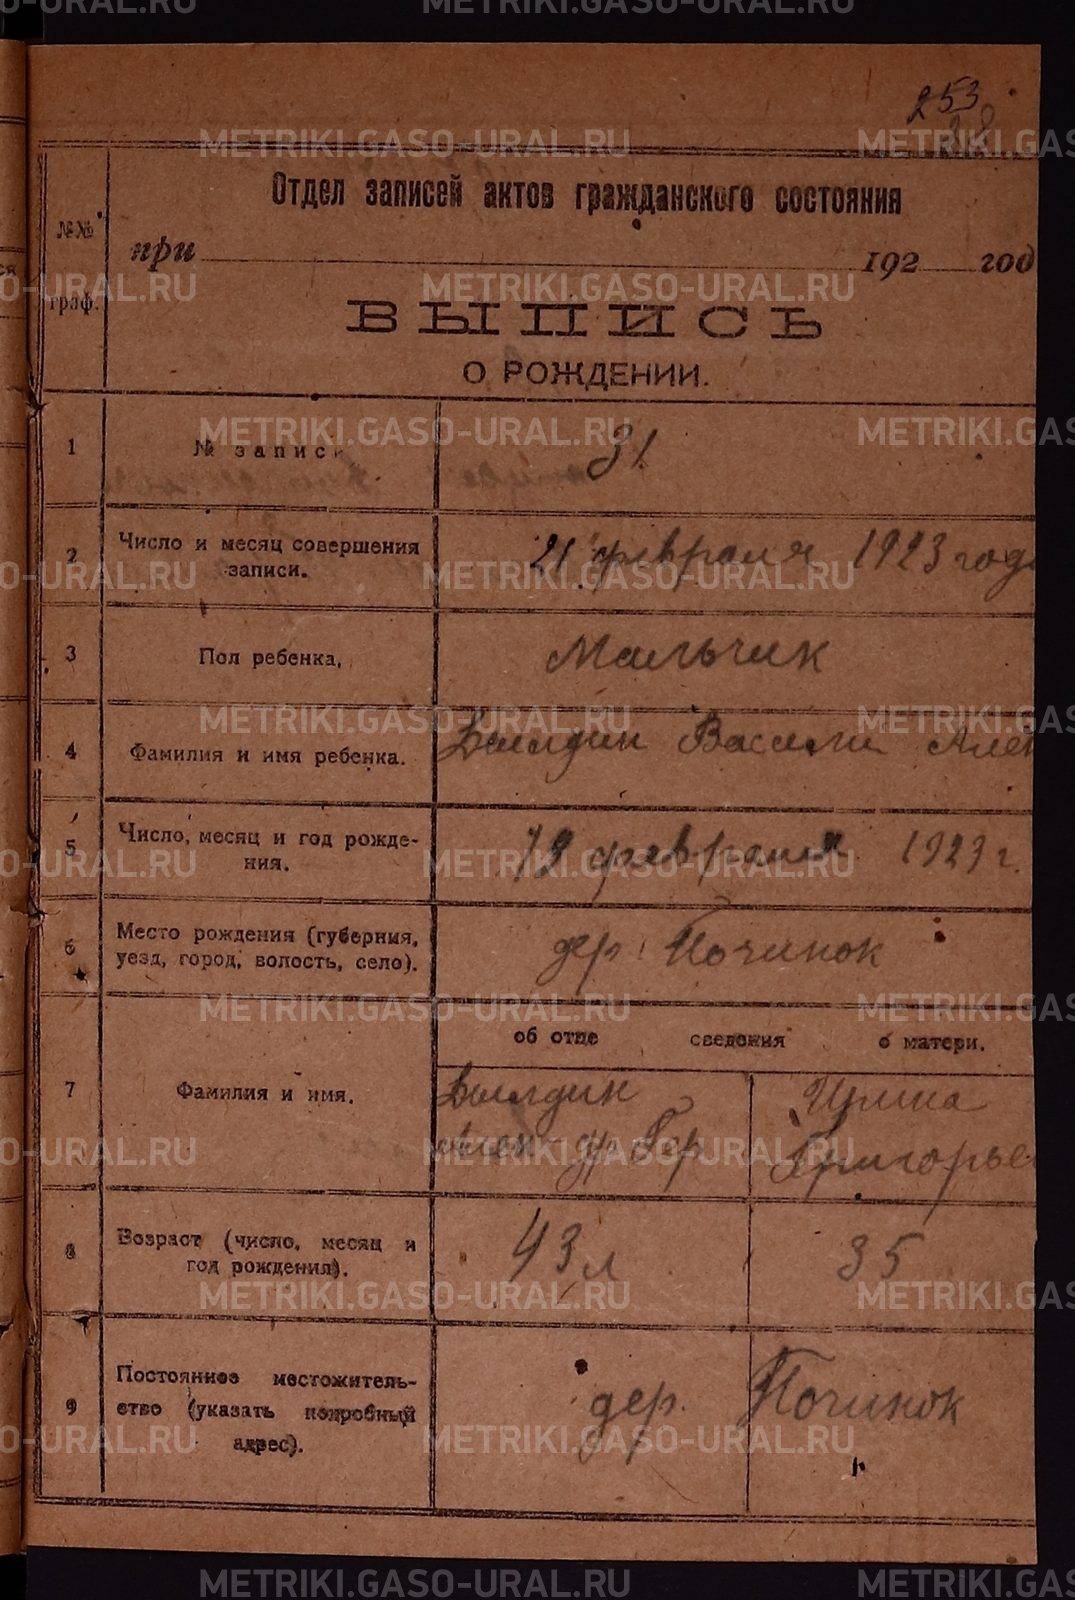 253
Отдел записей актов гражданского состояния
№№ граф.
при 192 год
ВЫПИСЬ
О РОЖДЕНИИ.
1 № записи 31.
2 Число и месяц совершения
записи. 21 февраля 1923 года
3 Пол ребенка. Мальчик
4 Фамилия и имя ребенка. Былдин Василий Алек
5 Число, месяц и год рожде-
ния. 19 февраля 1923 г.
6 Место рождения (губерния,
уезд, город, волость, село). дер. Починок
об отце сведения о матери.
7 Фамилия и имя. Былдин
Алек-др Гер
Григорье
8 Возраст (число, месяц и
год рождения). 43 л 35
9 Постоянное местожитель-
ство (указать подробный
адрес). дер. Починок
METRIKI.GASO-URAL.RU